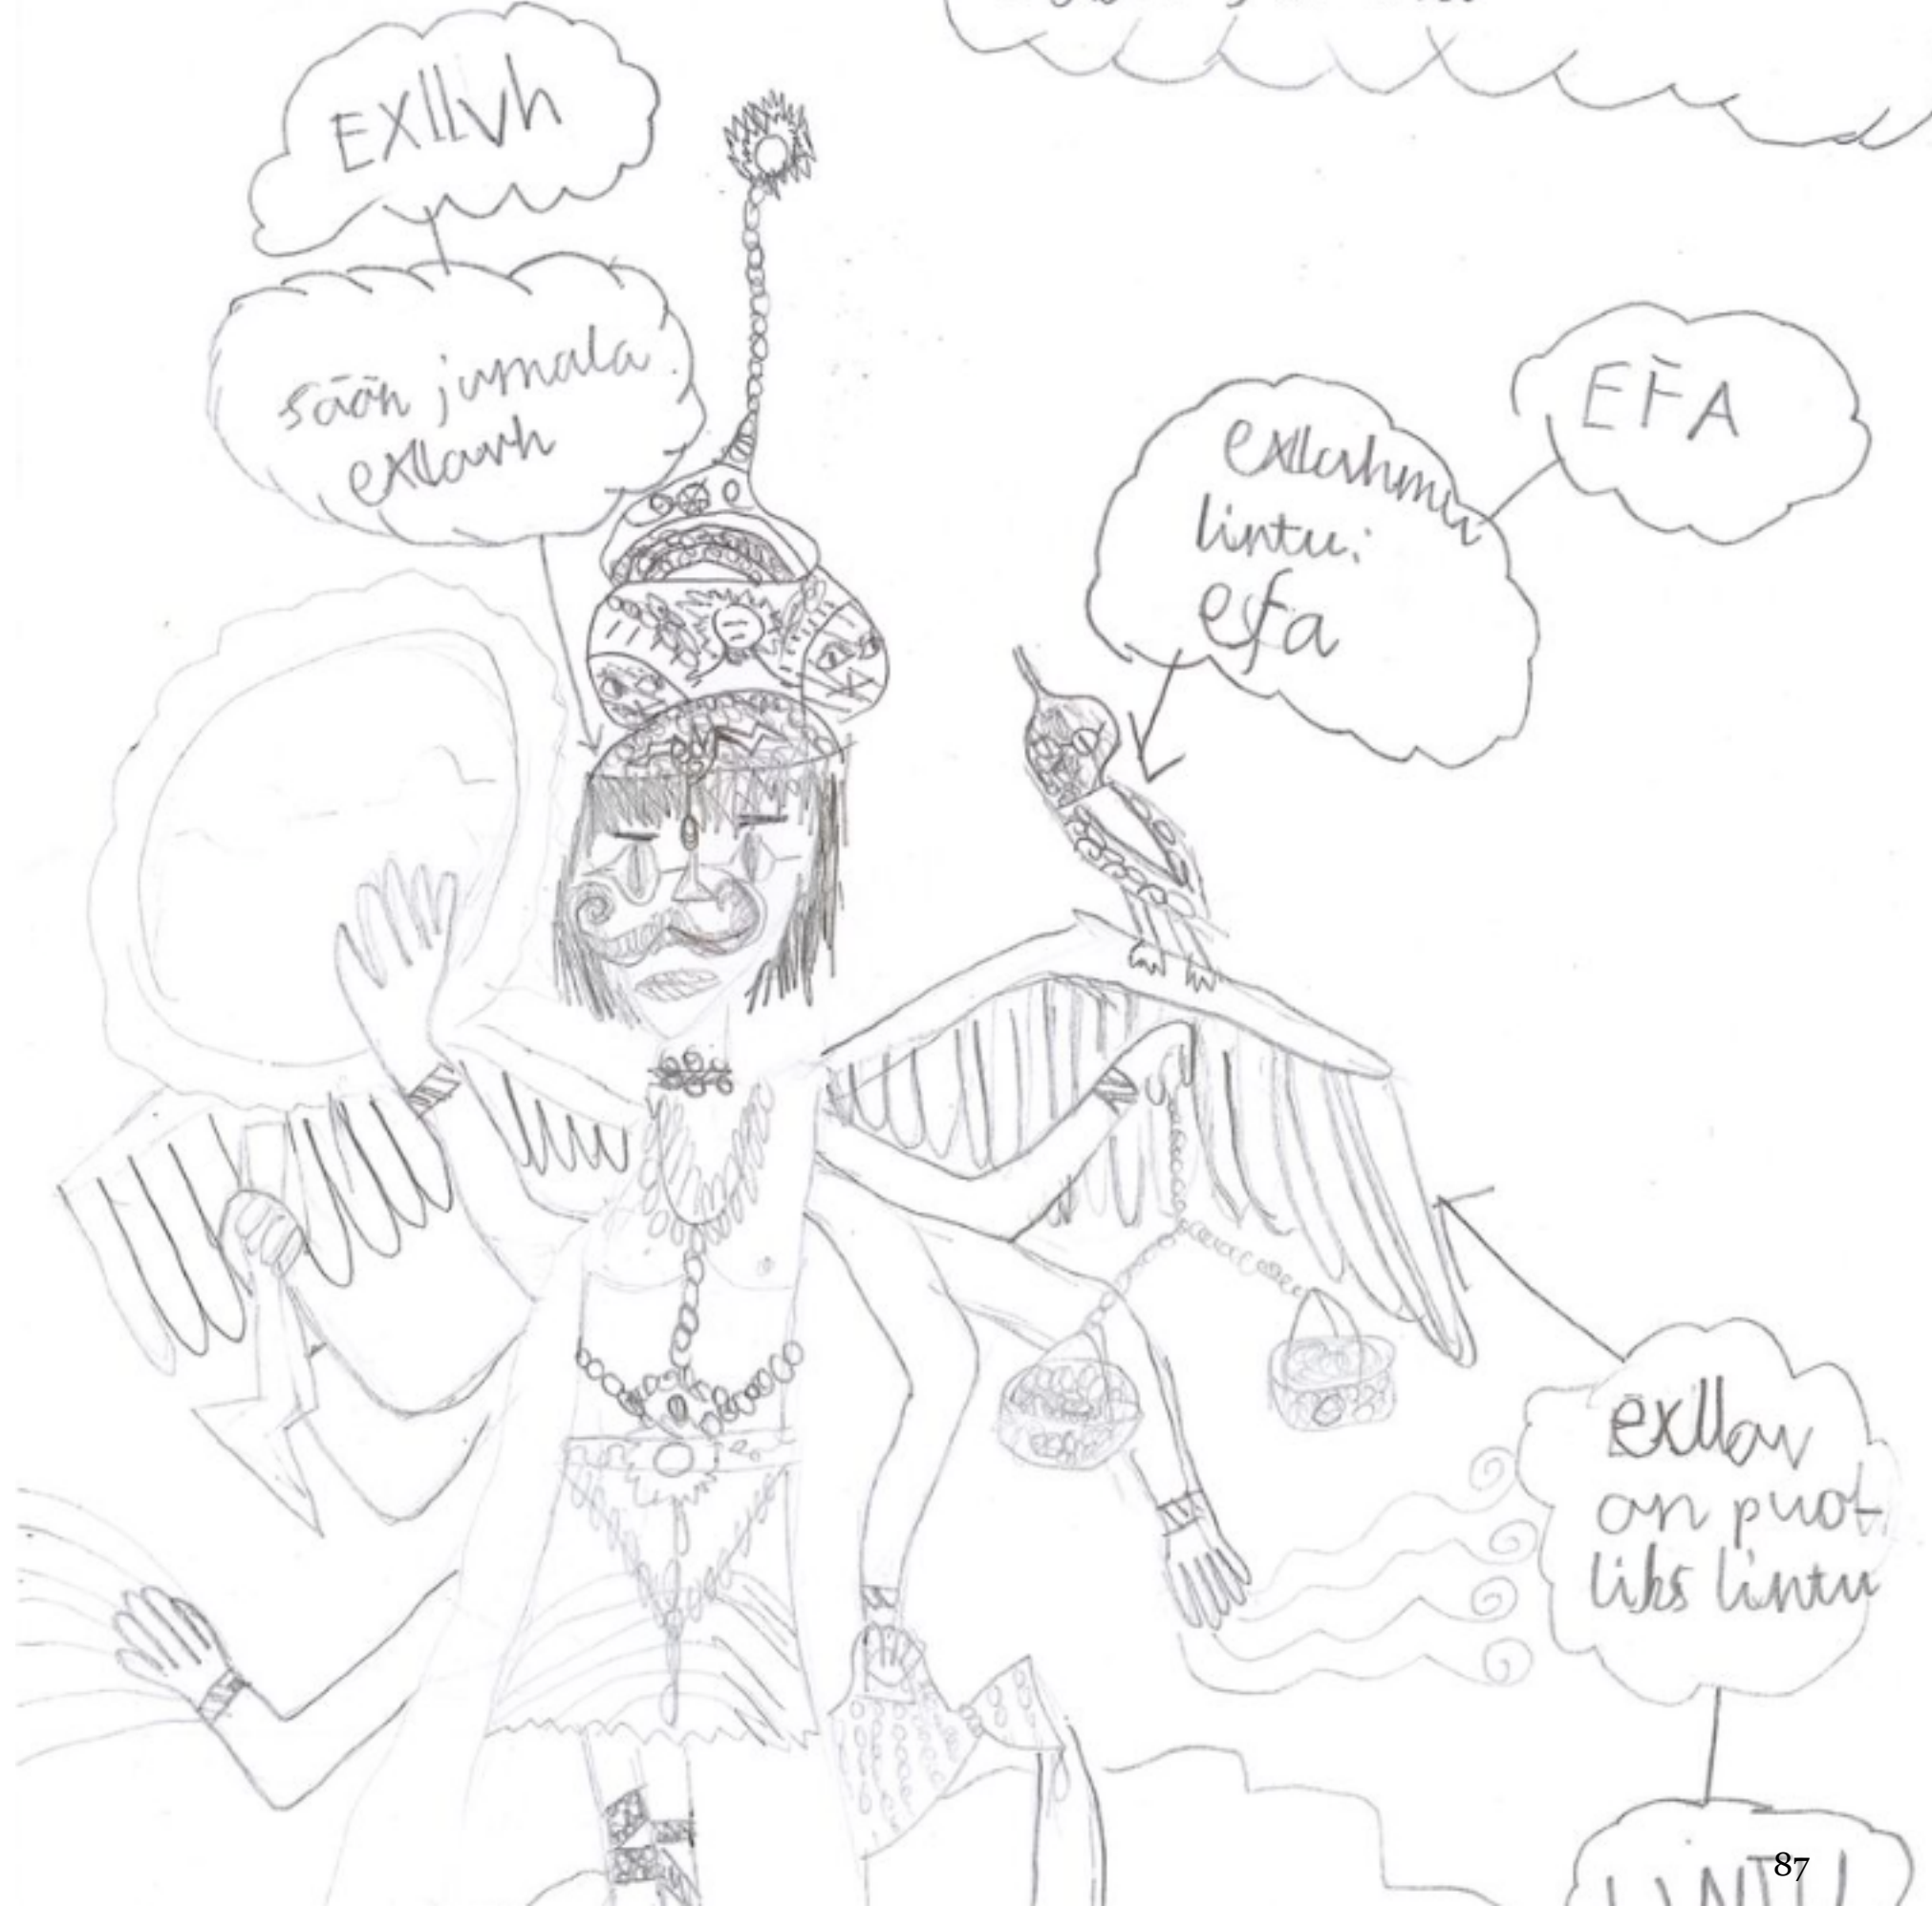 EXllvh
sään jumala
exllavh
EFA
lintu:
efa
exllav
on puol
liks lintu
LINTU
87